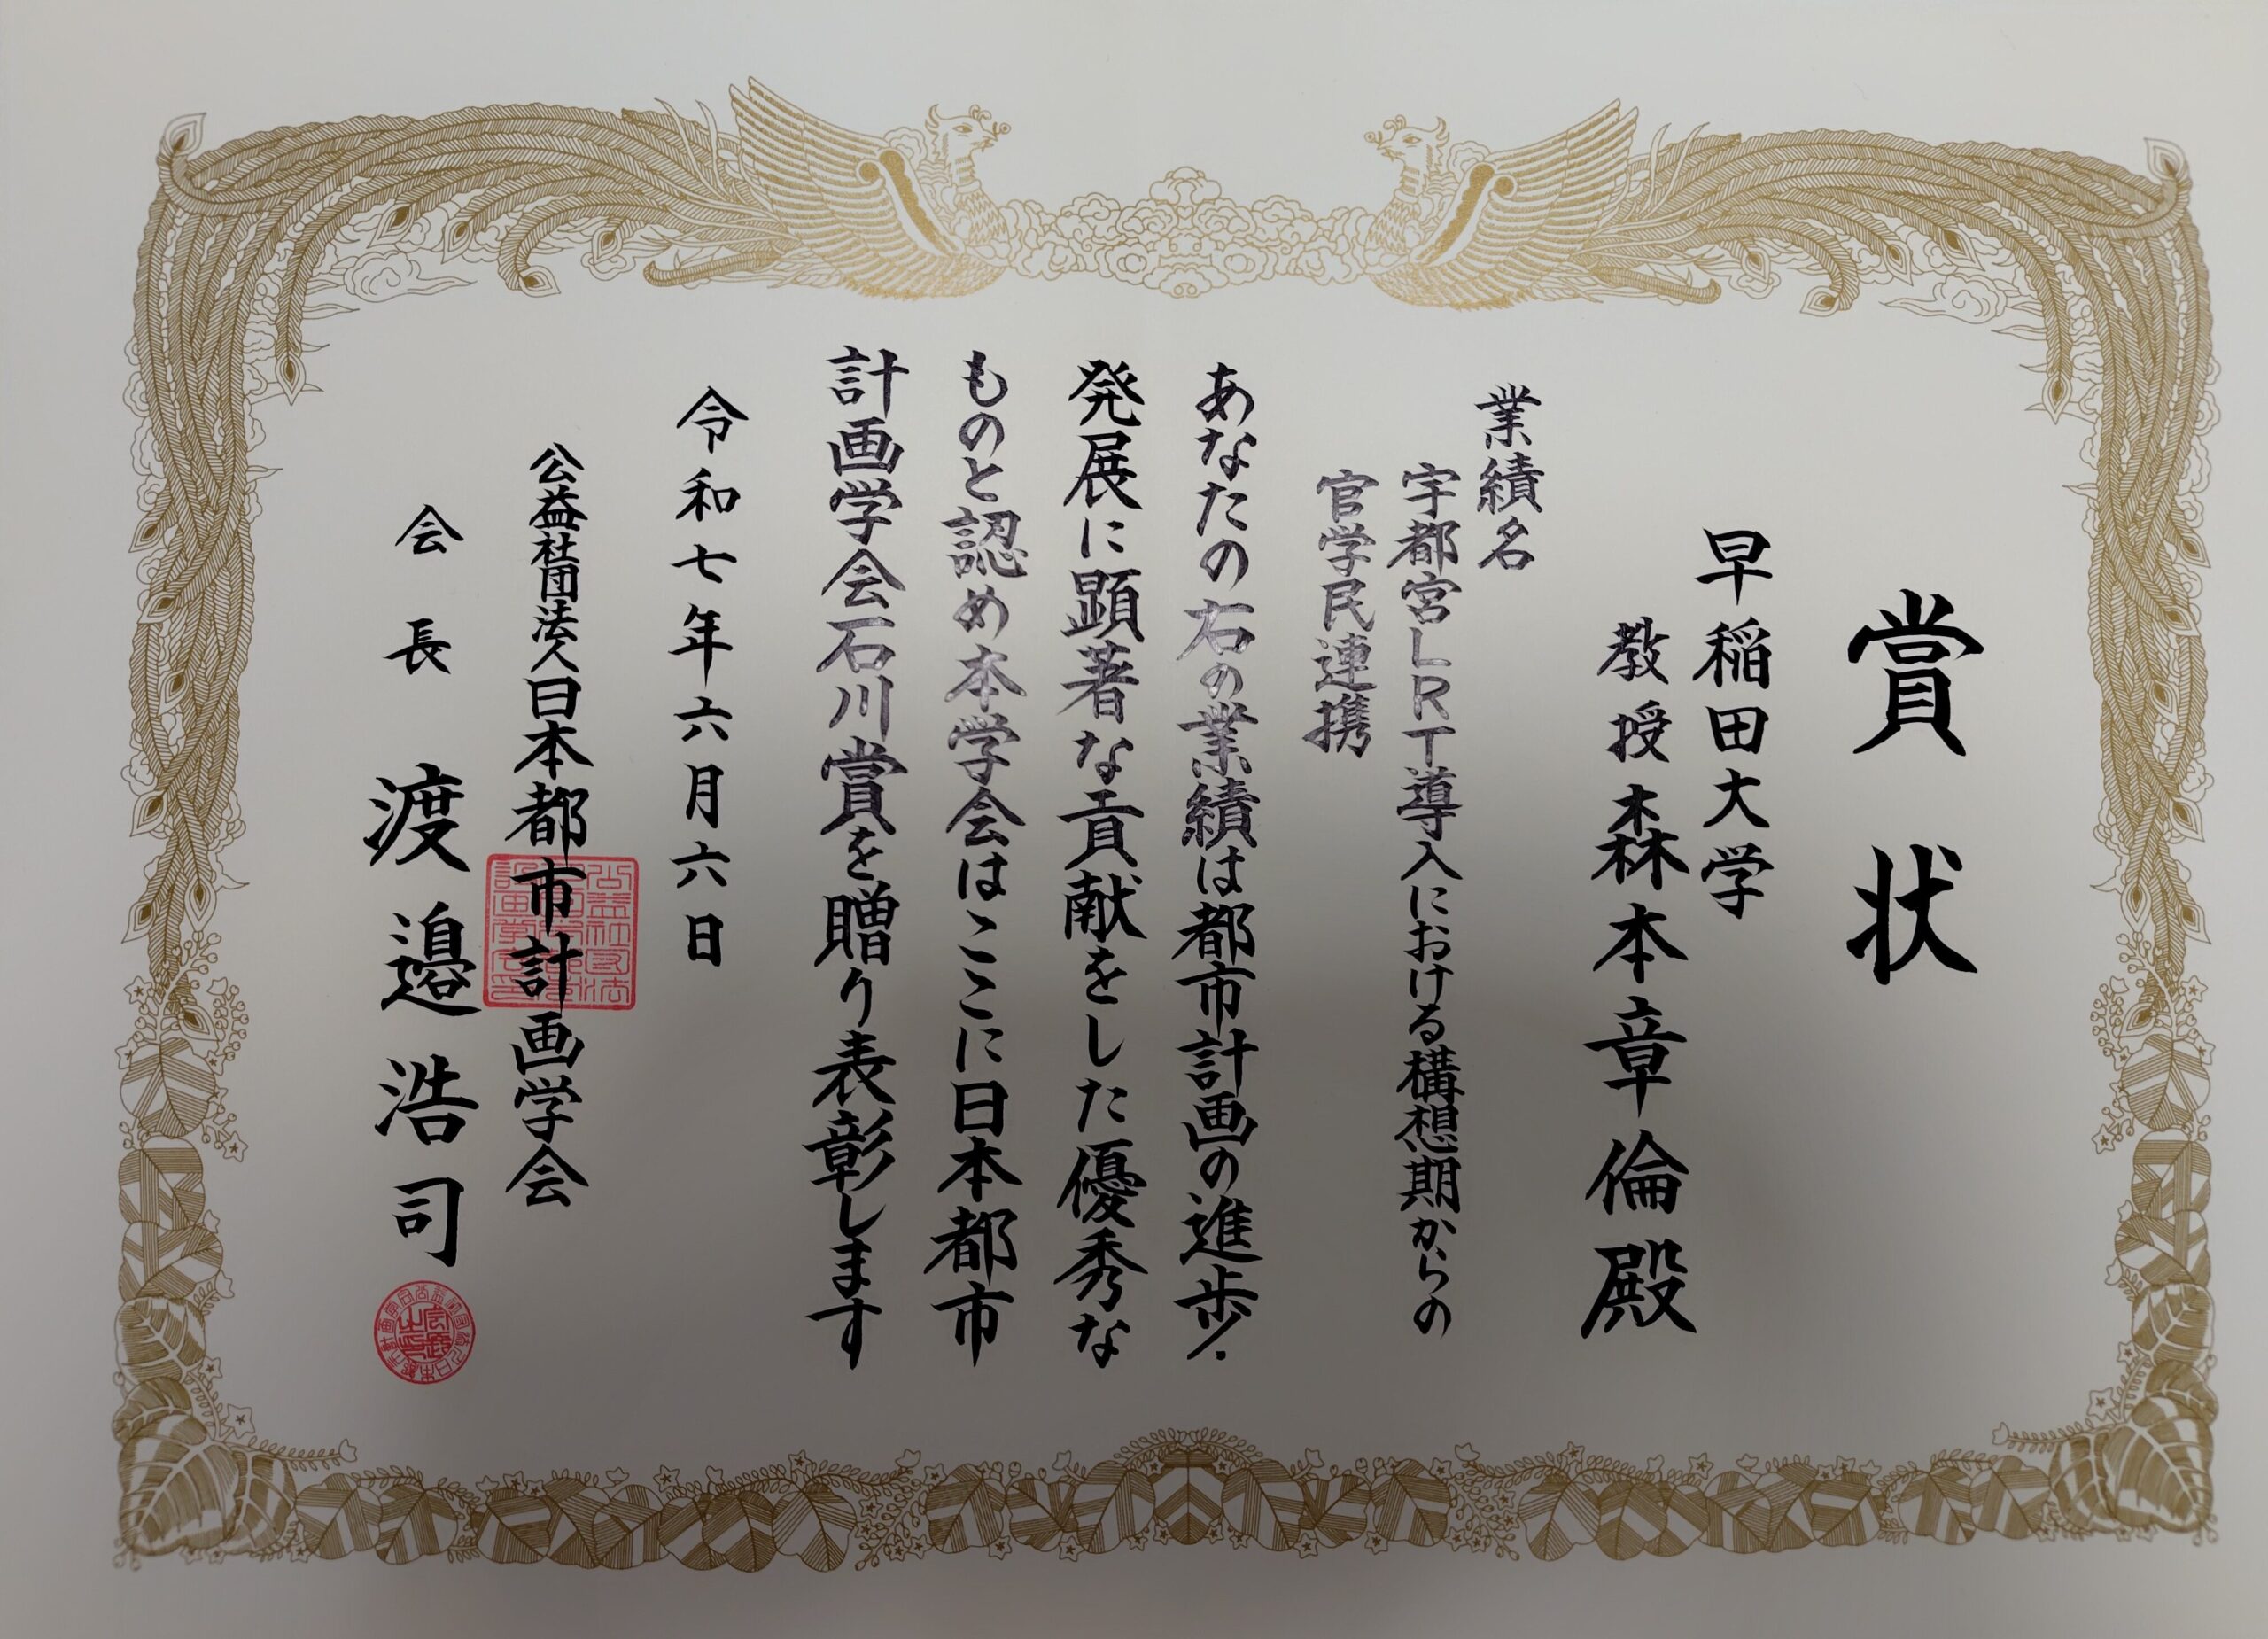 賞状
早稲田大学
教授 森本章倫殿
業績名
宇都宮LRT導入における構想期からの
官学民連携
あなたの右の業績は都市計画の進歩・
発展に顕著な貢献をした優秀な
ものと認め本学会はここに日本都市
計画学会石川賞を贈り表彰します
令和七年六月六日
公益社団法人日本都市計画学会
会長 渡邉浩司